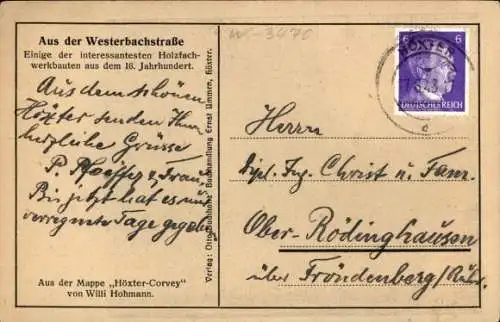 W-3470
Aus der Westerbachstraße
Einige der interessantesten Holzfach-
werkbauten aus dem 16. Jahrhundert.
Aus dem schönen
Höxter senden Ihnen
herzliche Grüsse
P. u. Frau.
Bis jetzt hat es nur
verregnete Tage gegeben
Aus der Mappe „Höxter-Corvey"
von Willi Hohmann.
Verlag: Otto Buchhandlung Ernst Ummen, Höxter.
HÖXTER
6
DEUTSCHES REICH
c
Herrn
Dipl. Ing. Christ u. Fam.
Ober-Rödinghausen
über Fröndenberg/Ruhr.